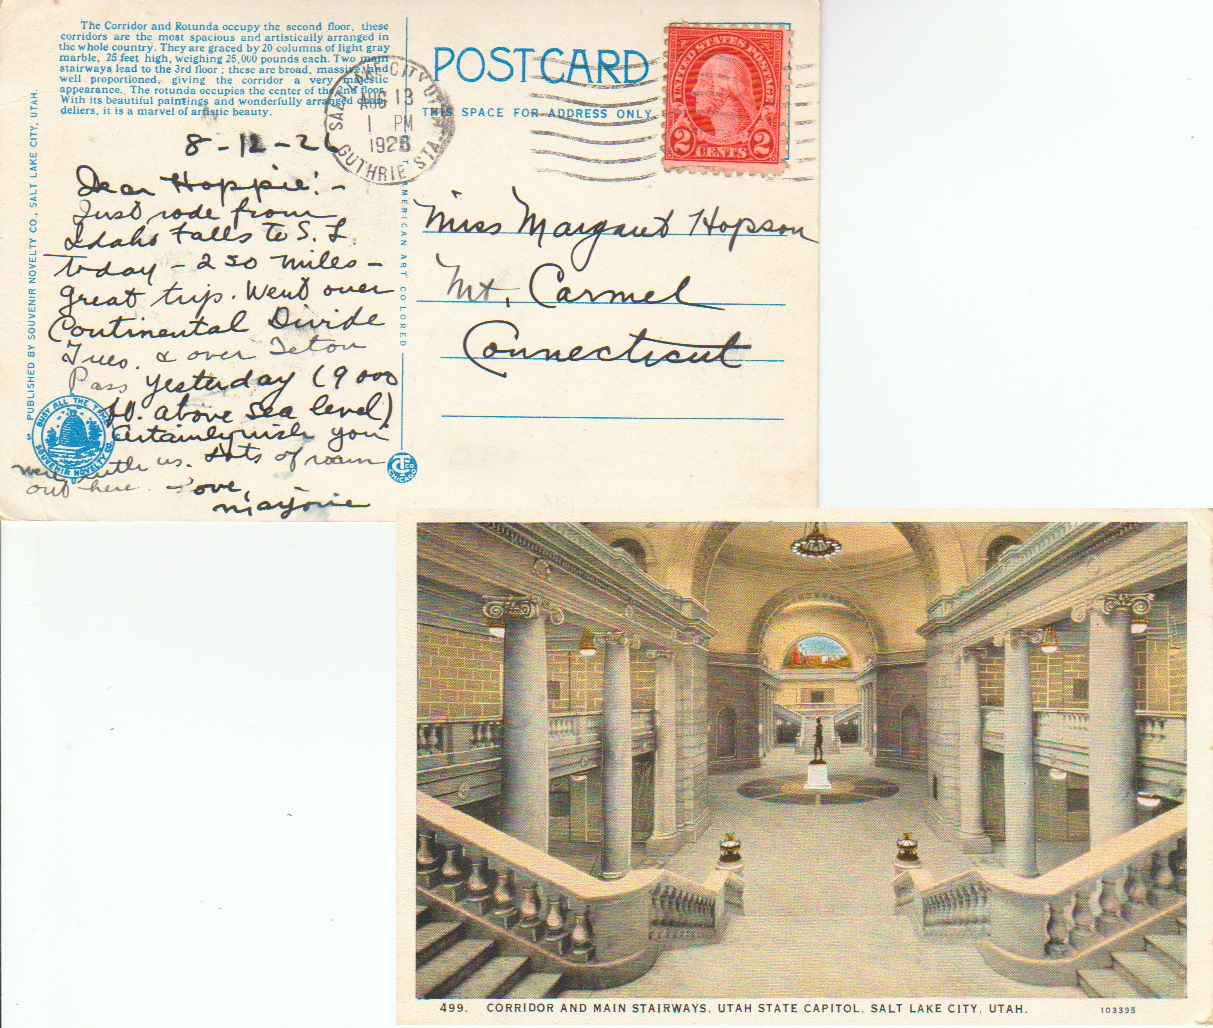 The Corridor and Rotunda occupy the second floor, these
corridors are the most spacious and artistically arranged in
the whole country. They are graced by 20 columns of light gray
marble, 25 feet high, weighing 25,000 pounds each. Two main
stairways lead to the 3rd floor; these are broad, massive and
well proportioned, giving the corridor a very majestic
appearance. The rotunda occupies the center of the 2nd floor.
With its beautiful paintings and wonderfully arranged chan-
deliers, it is a marvel of artistic beauty.
8-12-26
Dear Hoppie! -
Just rode from
Idaho Falls to S. L.
today - 250 miles -
great trip. Went over
Continental Divide
Tues. & over Teton
Pass yesterday (9000
ft. above sea level)
Certainly wish you
were with us. Lots of room
out here. Love,
Marjorie
PUBLISHED BY SOUVENIR NOVELTY CO., SALT LAKE CITY, UTAH.
BUSY ALL THE TIME
SOUVENIR NOVELTY CO.
AMERICAN ART COLORED
CHICAGO
POST CARD
THIS SPACE FOR ADDRESS ONLY
SALT LAKE CITY, UT
AUG 13
1 PM
1926
GUTHRIE STA.
UNITED STATES POSTAGE
2 2
CENTS
Miss Margaret Hopson
Mt. Carmel
Connecticut
499. CORRIDOR AND MAIN STAIRWAYS, UTAH STATE CAPITOL, SALT LAKE CITY, UTAH.
103395